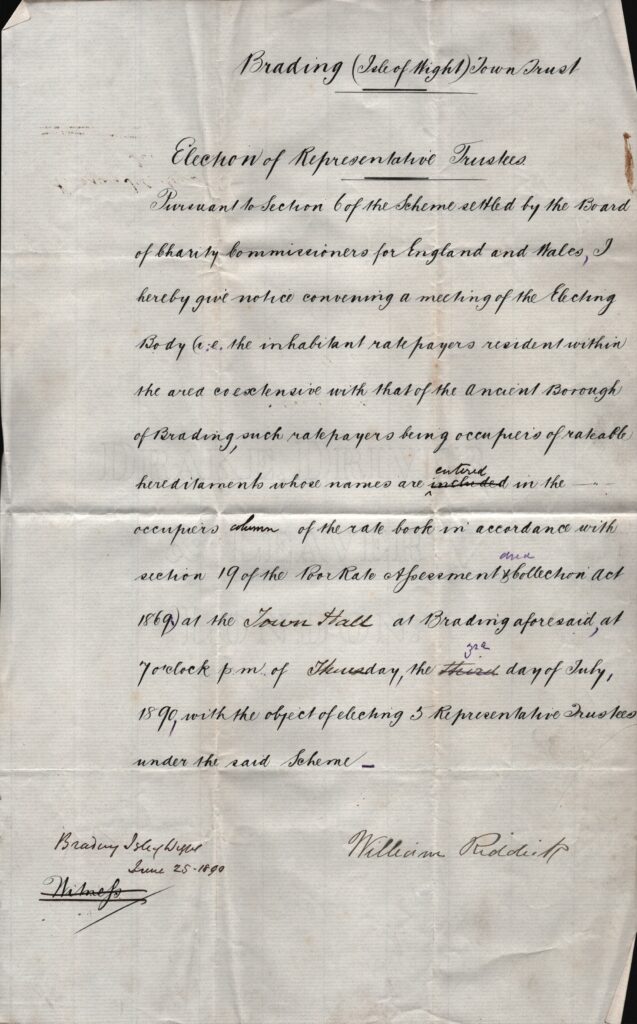 Brading (Isle of Wight) Town Trust
Election of Representative Trustees
Pursuant to Section 6 of the Scheme settled by the Board
of Charity Commissioners for England and Wales, I
hereby give notice convening a meeting of the Electing
Body (i.e. the inhabitant ratepayers resident within
the area coextensive with that of the Ancient Borough
of Brading, such ratepayers being occupiers of rateable
entered
hereditaments whose names are included in the
occupiers column of the rate book in accordance with
and
section 19 of the Poor Rate Assessment & Collection Act
1869) at the Town Hall at Brading aforesaid, at
3rd
7 o'clock p.m. of Thursday, the third day of July,
1890, with the object of electing 5 Representative Trustees
under the said Scheme
Brading Isle of Wight
June 25 - 1890
Witness
William Riddick